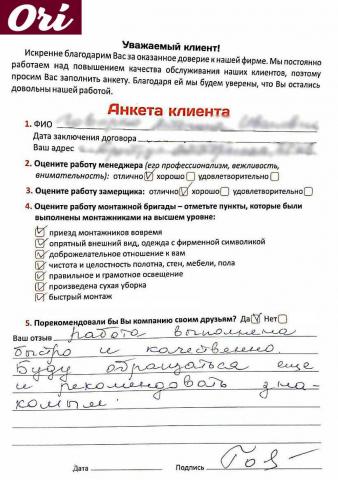 Ori
Уважаемый клиент!
Искренне благодарим Вас за оказанное доверие к нашей фирме. Мы постоянно
работаем над повышением качества обслуживания наших клиентов, поэтому
просим Вас заполнить анкету. Благодаря ей мы будем уверены, что Вы остались
довольны нашей работой.
Анкета клиента
1. ФИО
Дата заключения договора
Ваш адрес
2. Оцените работу менеджера (его профессионализм, вежливость,
внимательность): отлично хорошо удовлетворительно
3. Оцените работу замерщика: отлично хорошо удовлетворительно
4. Оцените работу монтажной бригады – отметьте пункты, которые были
выполнены монтажниками на высшем уровне:
приезд монтажников вовремя
опрятный внешний вид, одежда с фирменной символикой
доброжелательное отношение к вам
чистота и целостность полотна, стен, мебели, пола
правильное и грамотное освещение
произведена сухая уборка
быстрый монтаж
5. Порекомендовали бы Вы компанию своим друзьям? Да Нет
Ваш отзыв работа выполнена
быстро и качественно.
Буду обращаться еще
и рекомендовать зна-
комым.
Дата Подпись